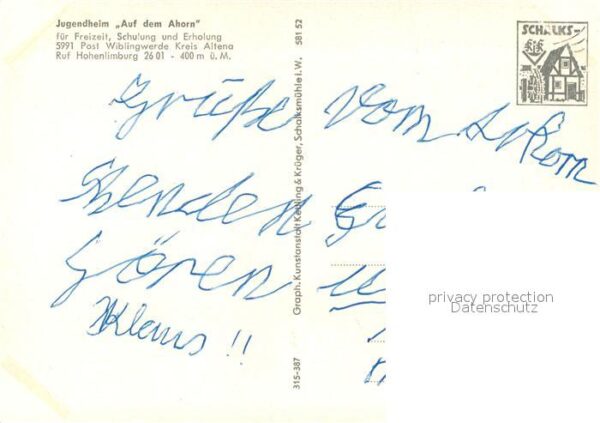 Jugendheim „Auf dem Ahorn"
für Freizeit, Schulung und Erholung
5991 Post Wiblingwerde Kreis Altena
Ruf Hohenlimburg 26 01 - 400 m ü. M.
SCHALKS-
Grüße vom Ahorn
Senden
Sören
Klaus !!
Graph. Kunstanstalt Keßling & Krüger, Schalksmühle i. W.
581 52
315-387
privacy protection
Datenschutz